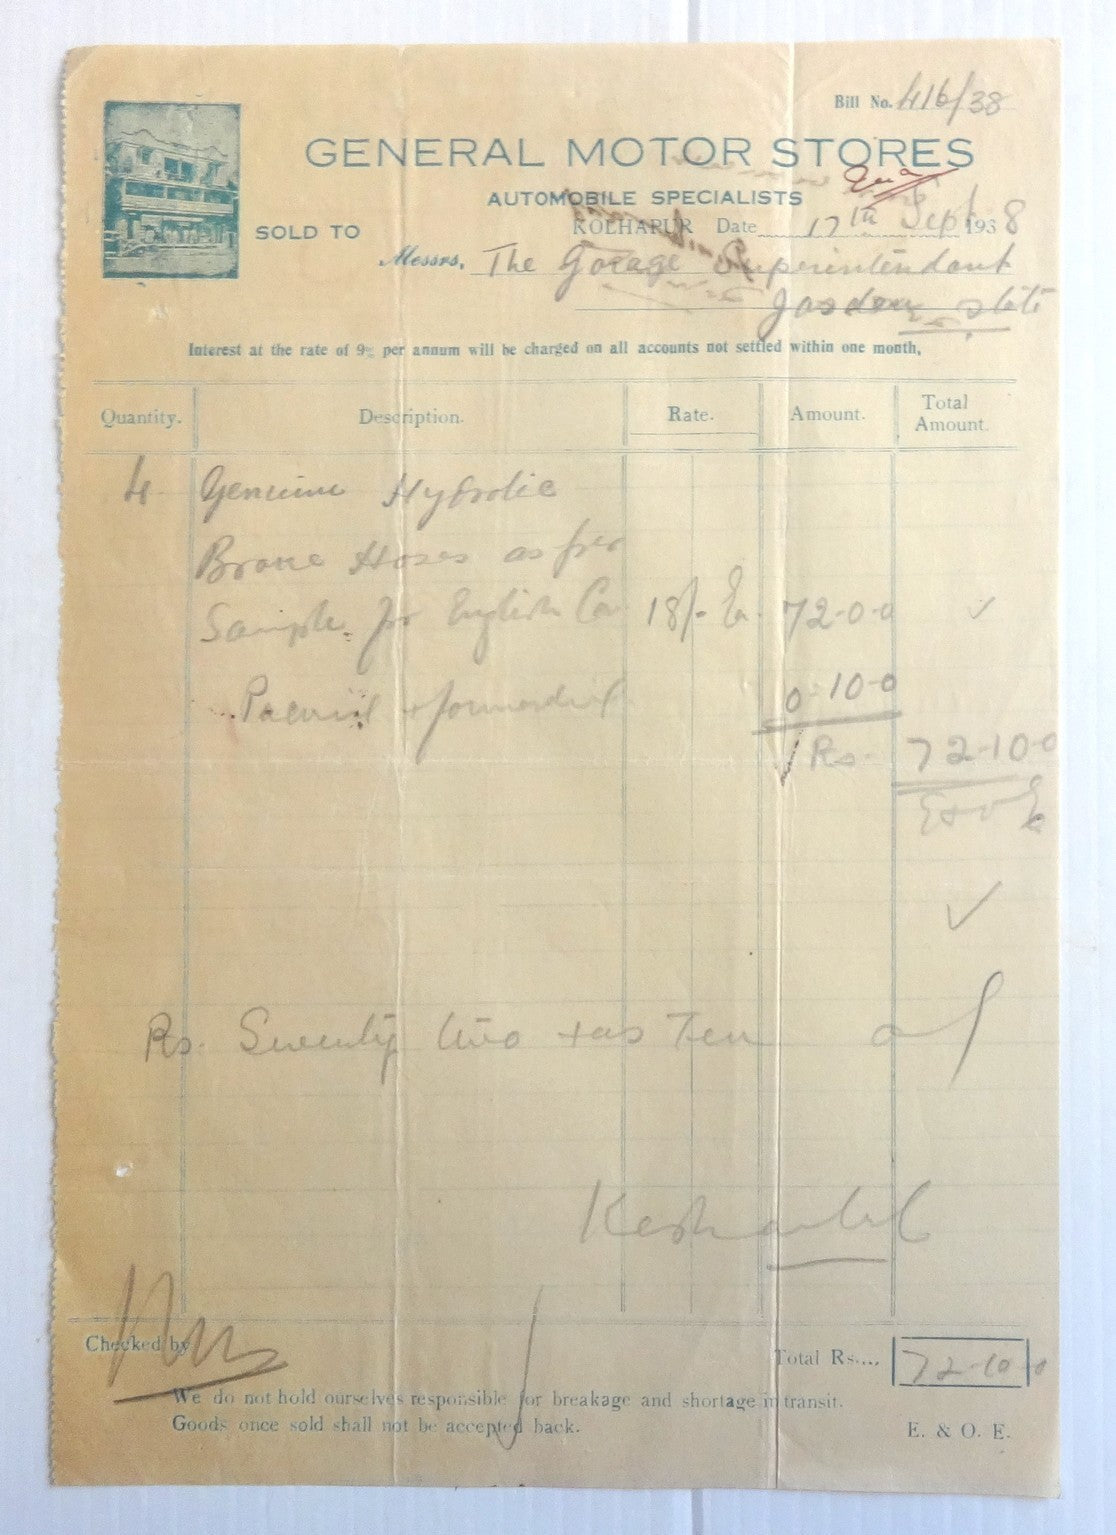 Bill No. 416/38
GENERAL MOTOR STORES
AUTOMOBILE SPECIALISTS
KOLHAPUR Date 17th Sept 1938
SOLD TO
Messrs. The Garage Superintendant
Jasdan State
Interest at the rate of 9% per annum will be charged on all accounts not settled within one month.
Quantity. Description. Rate. Amount. Total Amount.
4 Genuine Hydrolic
Brake Hoses as per
Sample for English Car 18/- Ea. 72-0-0
Packing + forwarding 0-10-0
Rs. 72-10-0
E & O E
Rs. Seventy two + as Ten
Keshavlal
Checked by
Total Rs.... 72-10-0
We do not hold ourselves responsible for breakage and shortage in transit.
Goods once sold shall not be accepted back.
E. & O. E.